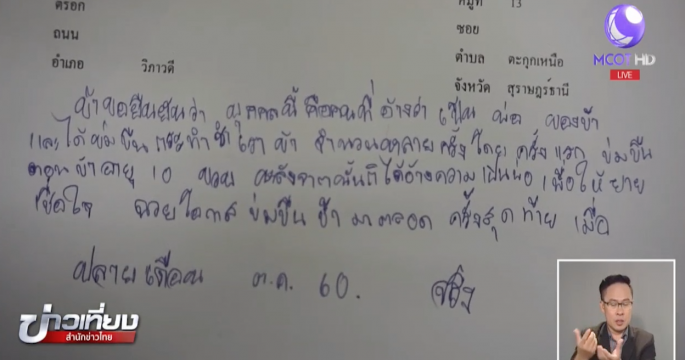 ตรอก หมู่ที่ 13
ถนน ซอย
อำเภอ วิภาวดี ตำบล ตะกุกเหนือ
จังหวัด สุราษฎร์ธานี
MCOT HD
LIVE
ข้าขอยืนยันว่า บุคคลนี้ คือคนที่อ้างว่า เป็น พ่อ ของข้า
และได้ข่มขืน กระทำชำเราข้า จำนวนหลายครั้ง โดย ครั้งแรก ข่มขืน
ตอนข้าอายุ 10 ขวบ หลังจากนั้นก็ได้อ้างความเป็นพ่อ เพื่อให้ยาย
เชื่อใจ ฉวยโอกาส ข่มขืน ข้า มาตลอด ครั้งสุดท้าย เมื่อ
ปลายเดือน ต.ค. 60.
ข่าวเที่ยง
สำนักข่าวไทย